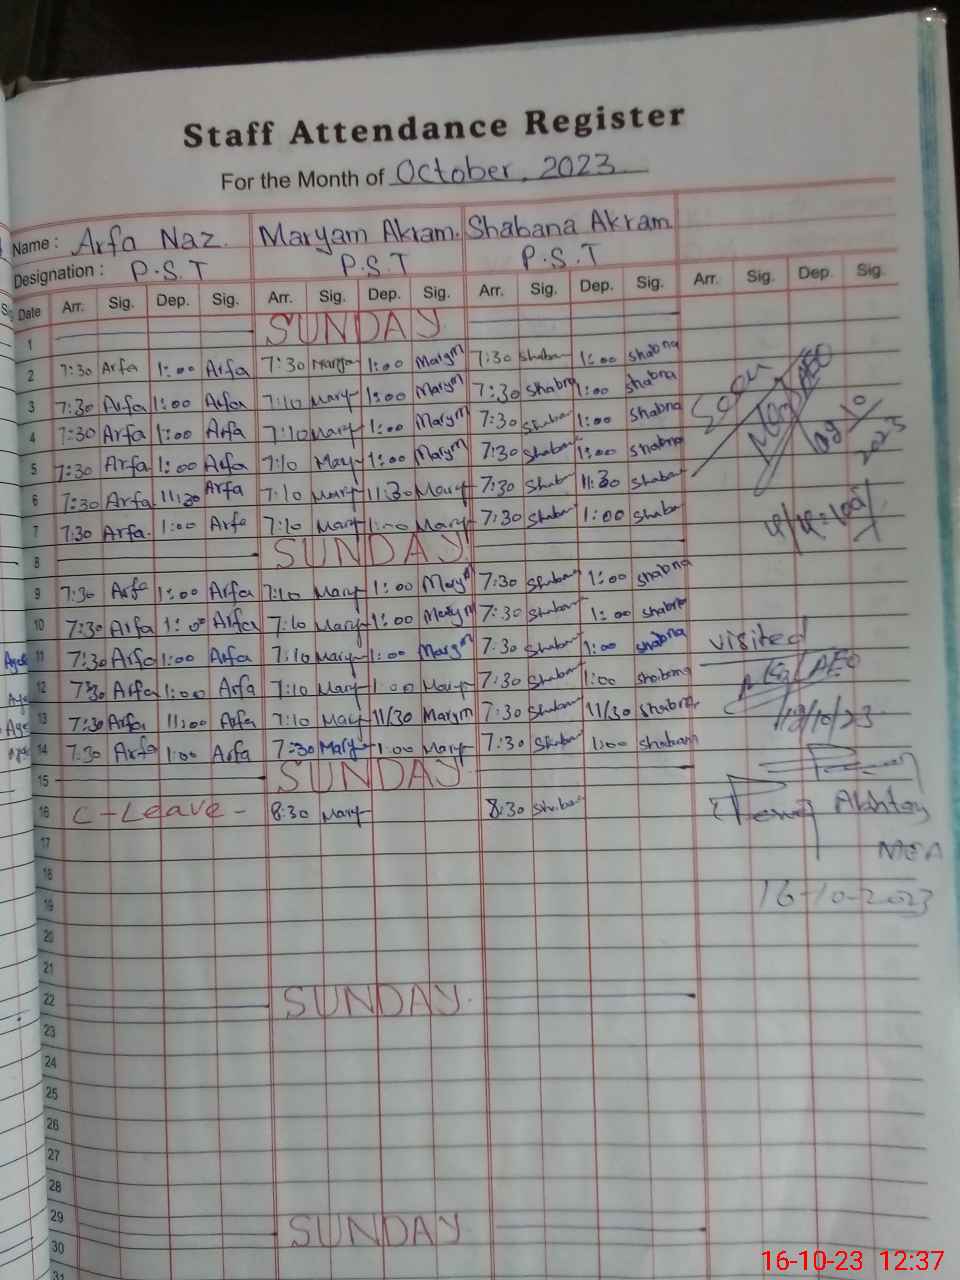 Staff Attendance Register
For the Month of October, 2023
Name: Arfa Naz. Maryam Akram. Shabana Akram
Designation: P.S.T P.S.T P.S.T
Date Arr. Sig. Dep. Sig. Arr. Sig. Dep. Sig. Arr. Sig. Dep. Sig. Arr. Sig. Dep. Sig.
1 SUNDAY
2 7:30 Arfa 1:00 Arfa 7:30 Marym 1:00 Marym 7:30 Shaba 1:00 Shabna
3 7:30 Arfa 1:00 Arfa 7:10 Mary 1:00 Marym 7:30 Shabn 1:00 shabna
4 7:30 Arfa 1:00 Arfa 7:10 Mary 1:00 Marym 7:30 Shaba 1:00 shabna
5 7:30 Arfa 1:00 Arfa 7:10 May 1:00 Marym 7:30 Shaba 1:00 shabna
6 7:30 Arfa 11:30 Arfa 7:10 Mary 11:30 Mary 7:30 Shab 11:30 Shaba
7 7:30 Arfa. 1:00 Arfe 7:10 Mary 1:00 Mary 7:30 Shaba 1:00 shaba
8 SUNDAY
9 7:30 Arfa 1:00 Arfa 7:10 Mary 1:00 Marym 7:30 Shaban 1:00 shabna
10 7:30 Arfa 1:00 Arfa 7:10 Mary 1:00 Marym 7:30 Shaban 1:00 shabna
11 7:30 Arfa 1:00 Arfa 7:10 Mary 1:00 Marym 7:30 Shaban 1:00 shabna visited
12 7:30 Arfa 1:00 Arfa 7:10 Mary 1:00 Mary 7:30 Shaban 1:00 shabna AEO
13 7:30 Arfa 11:00 Arfa 7:10 May 11/30 Marym 7:30 Shaban 11/30 shabna
14 7:30 Arfa 1:00 Arfa 7:30 Mary 1:00 Mary 7:30 Shaban 1:00 shabana
15 SUNDAY
16 C-Leave- 8:30 Mary 8:30 Shaba Akhtar
17 MEA
18
19 16-10-2023
20
21
22 SUNDAY.
23
24
25
26
27
28
29 SUNDAY
30
31
16-10-23 12:37